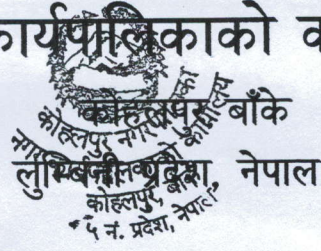 कार्यपालिकाको
कोहलपुर बाँके
लुम्बिनी प्रदेश, नेपाल
कोहलपुर नगरपालिका
कार्यालय
कोहलपुर, बाँके
५ नं. प्रदेश, नेपाल